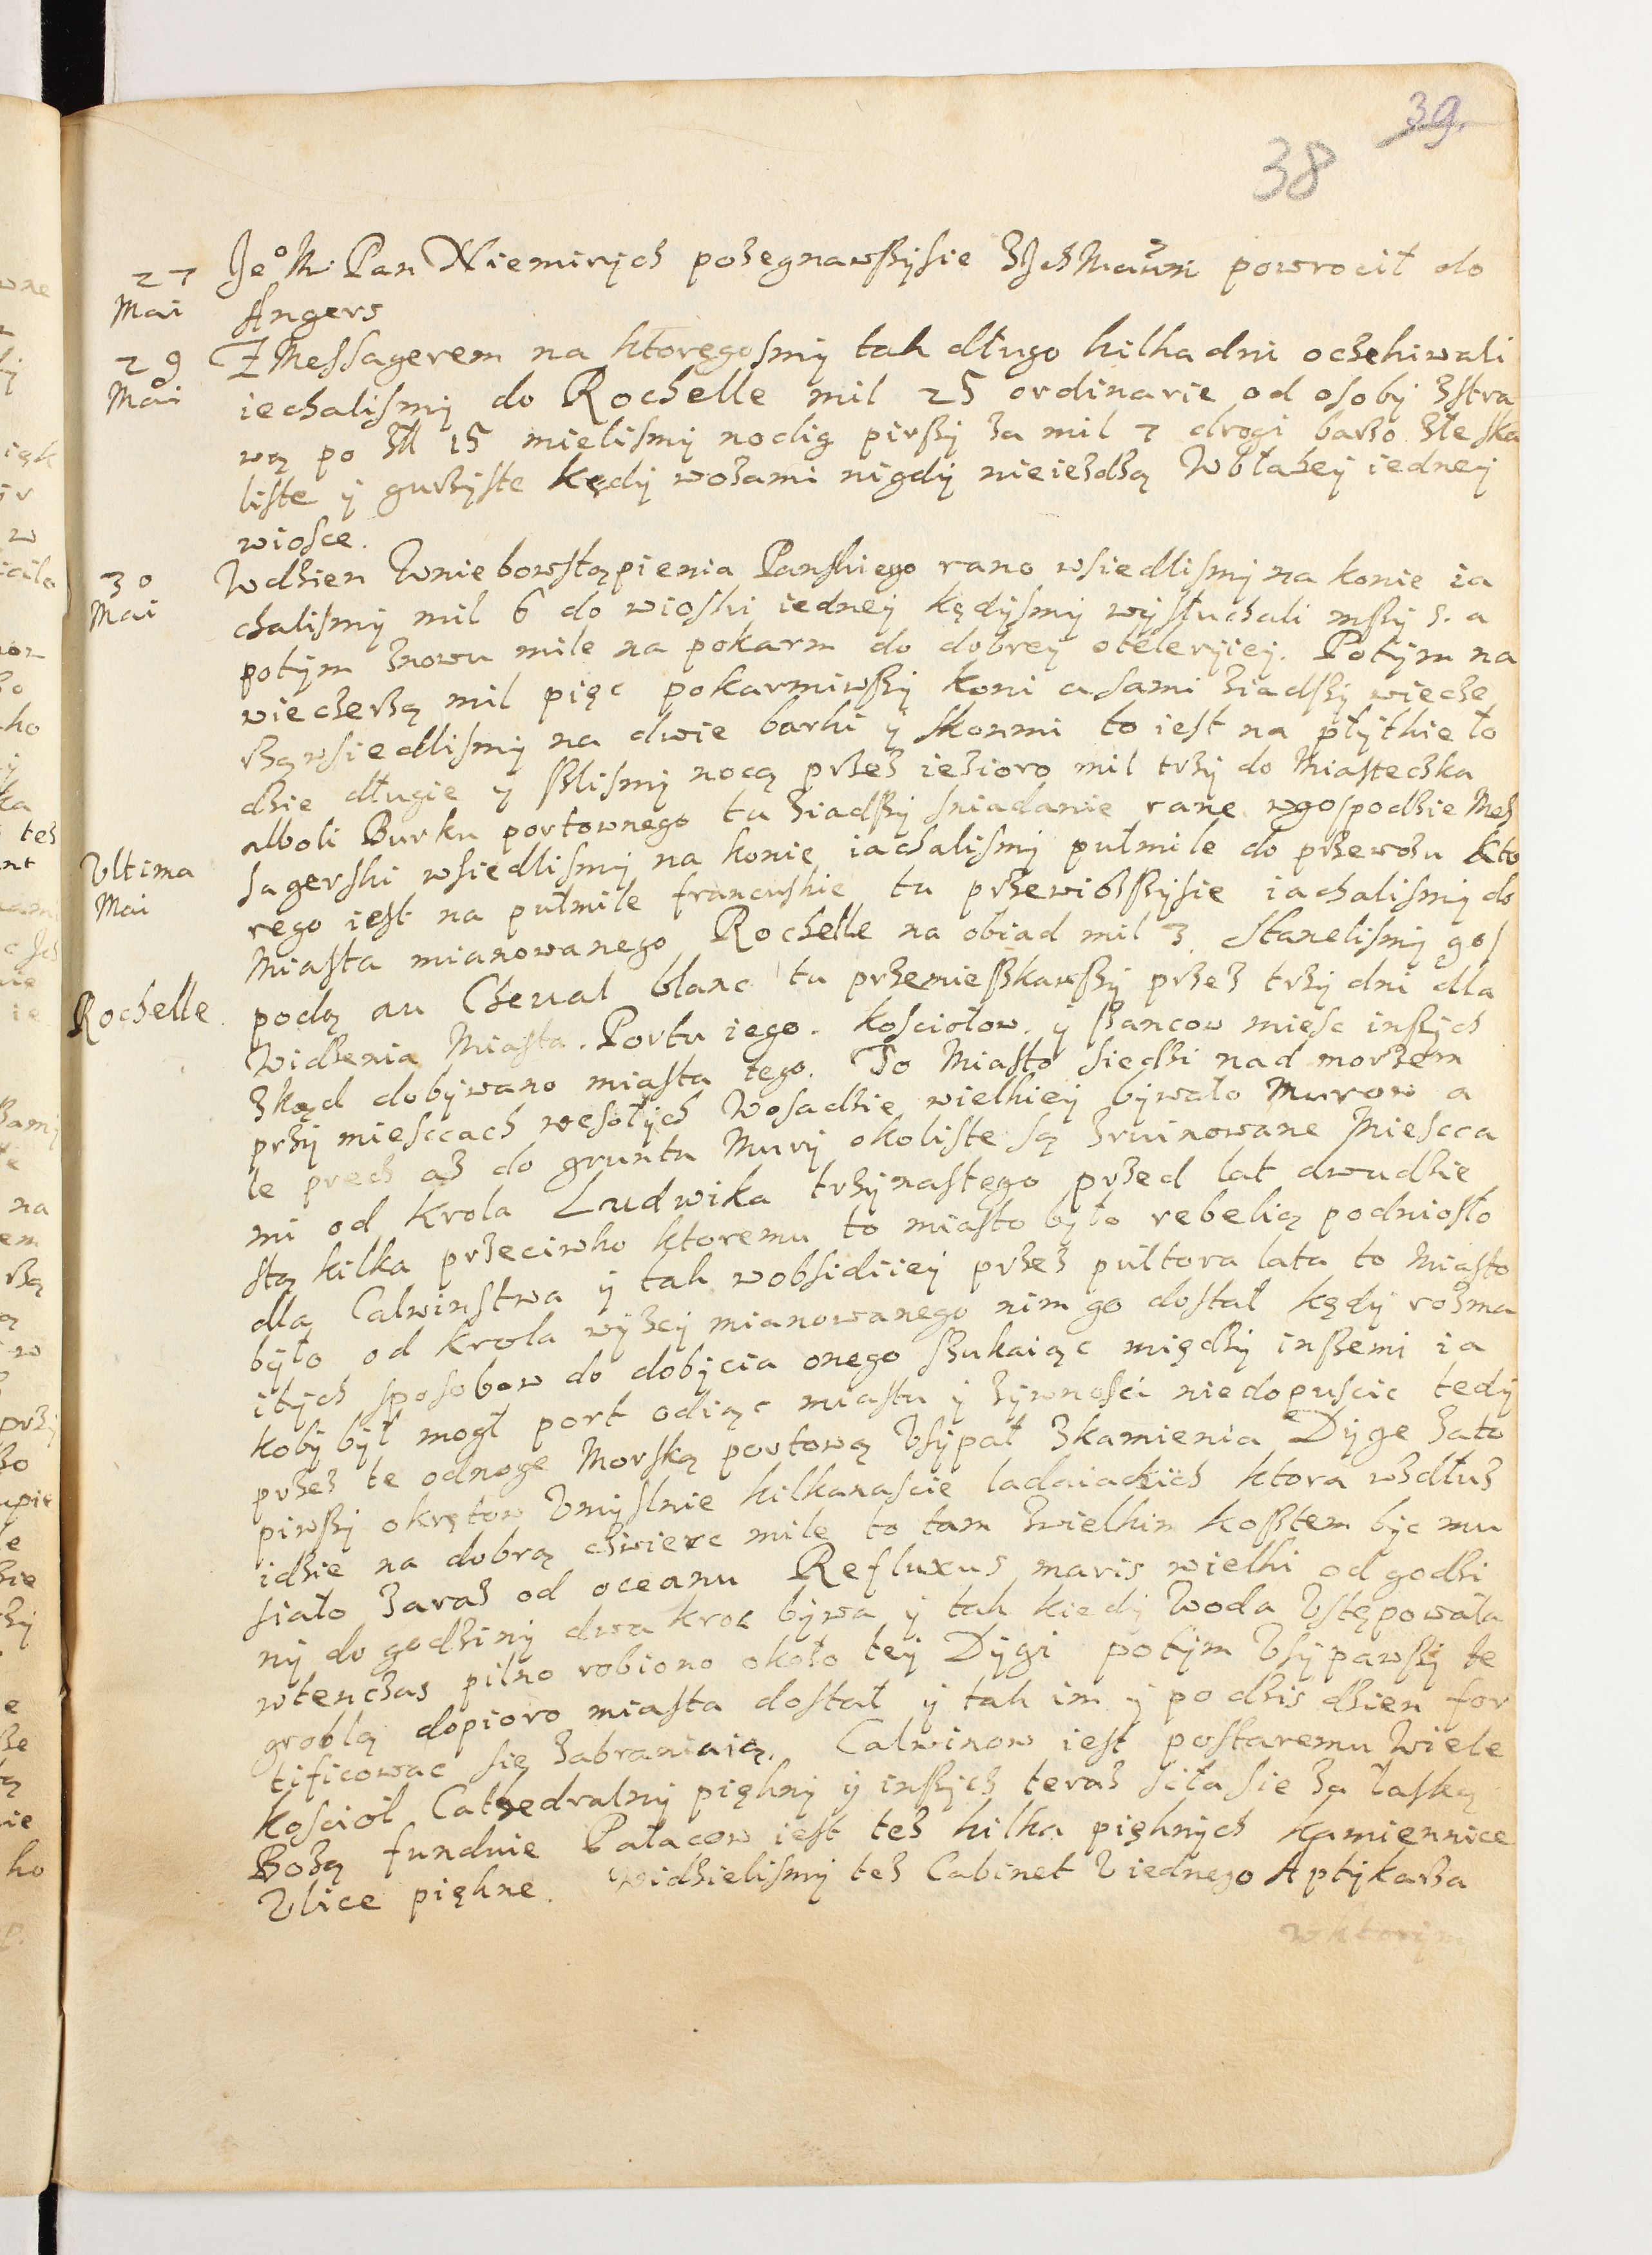 39.
38
27 Je° M. Pan Niemirycz pozegnawszysie z Jch Mciami powrocił do
Mai Angers
29 Z Messagerem na ktoręgosmy tak długo kilka dni oczekiwali
Mai iechalismy do Rochelle mil 25 ordinarie od osoby zstra
wą po zł 15 mielismy noclig pirszy za mil 7 drogi barzo złe ska
liste y gurzyste kędy wozami nigdy nieiezdzą W błahey iedney
wiosce.
30 W dzien W niebowstąpienia Panskiego rano wsiedlismy na konie ia
Mai chalismy mil 6 do wioski iedney kędysmy wysłuchali mszy s. a
potym znowu mile na pokarm do dobrey oteleryiey. Potym na
wieczerzą mil pięc pokarmiwszy koni a sami ziadszy wiecze
rzą wsiedlismy na dwie barki y skonmi to iest na płytkie ło
dzie długie y szlismy nocą przez iezioro mil trzy do Miasteczka
alboli Burku portownego tu ziadszy sniadanie rane w gospodzie Mes
Vltima sagerski wsiedlismy na konie iachalismy pułmile do przewozu kto
Mai rego iest na pułmile francuskie tu przewiozszysie iachalismy do
Miasta mianowanego Rochelle na obiad mil 3. Stanelismy gos
Rochelle. podą au Cheval blanc tu przemieszkawszy przez trzy dni dla
Widzenia Miasta. Portu iego. kosciołow. y szancow miesc inszych
zkąd dobywano miasta tego. To Miasto siedzi nad morzem
przy miesccach wesołych W osadzie wielkiey bywało Murow a
le precz az do gruntu Mury okoliste są zruinowane Miescca
mi od Krola Ludwika trzynastego przed lat dwudzie
stą kilka przeciwko ktoremu to miasto było rebelią podniosło
dlą Calwinstwa y tak w obsidiiey przez pultora lata to Miasto
było od krola wyzey mianowanego nim go dostał kędy rozma
itych sposobow do dobycia onego szukaiąc między inszemi ia
koby był mogł port odiąc miastu y zywnosci niedopuscic tedy
przez te odnoge Morską portową Vsypał z kamienia Dyge zato
piwszy okrętow Vmyslnie kilkanascie ladaiackich ktora wzdłuz
idzie na dobrą cwierc mile to tam zwielkim kosztem byc mu
siało zaraz od oceanu Refluxus maris wielki od godzi
ny do godziny dwa kroc bywa y tak kiedy Woda Vstępowała
wtenczas pilno robiono około tey Dygi potym Vsypawszy te
groblą dopioro miasta dostał y tak im y po dzis dzien for
tificowac się zabraniaią. Calwinow iest postaremu Wiele
kosciol Cathedralny piękny y inszych teraz siła sie za łaską
Bozą funduie Pałacow iest tez kilka pięknych kamiennice
Vlice piękne. Widzielismy tez Cabinet V iednego Aptykarza
wktorym